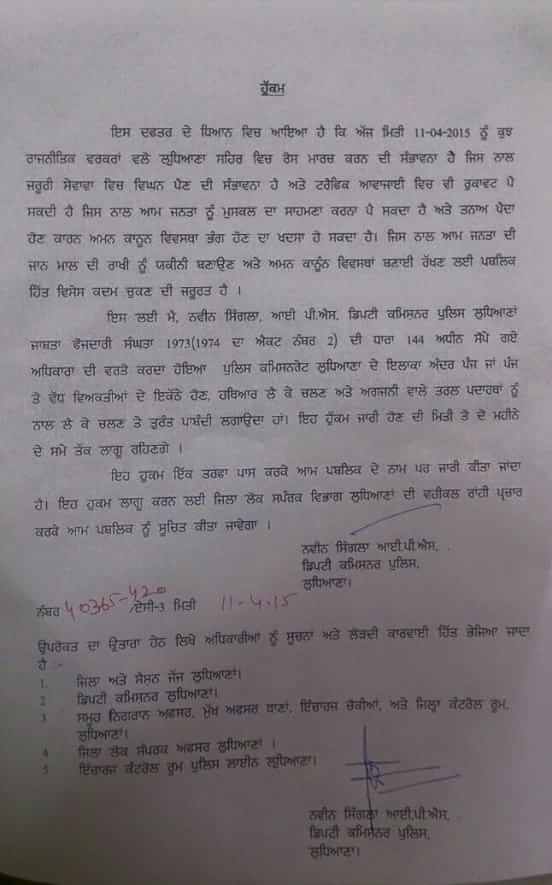 ਹੁੱਕਮ
ਇਸ ਦਫਤਰ ਦੇ ਧਿਆਨ ਵਿਚ ਆਇਆ ਹੈ ਕਿ ਅੱਜ ਮਿਤੀ 11-04-2015 ਨੂੰ ਕੁਝ
ਰਾਜਨੀਤਿਕ ਵਰਕਰਾਂ ਵਲੋ ਲੁਧਿਆਣਾ ਸਹਿਰ ਵਿਚ ਰੋਸ ਮਾਰਚ ਕਰਨ ਦੀ ਸੰਭਾਵਨਾ ਹੈ ਜਿਸ ਨਾਲ
ਜਰੂਰੀ ਸੇਵਾਵਾ ਵਿਚ ਵਿਘਨ ਪੈਣ ਦੀ ਸੰਭਾਵਨਾ ਹੈ ਅਤੇ ਟਰੈਫਿਕ ਆਵਾਜਾਈ ਵਿਚ ਵੀ ਰੁਕਾਵਟ ਪੈ
ਸਕਦੀ ਹੈ ਜਿਸ ਨਾਲ ਆਮ ਜਨਤਾ ਨੂੰ ਮੁਸਕਲ ਦਾ ਸਾਹਮਣਾ ਕਰਨਾ ਪੈ ਸਕਦਾ ਹੈ ਅਤੇ ਤਨਾਅ ਪੈਦਾ
ਹੋਣ ਕਾਰਨ ਅਮਨ ਕਾਨੂਨ ਵਿਵਸਥਾ ਭੰਗ ਹੋਣ ਦਾ ਖਦਸਾ ਹੋ ਸਕਦਾ ਹੈ। ਜਿਸ ਨਾਲ ਆਮ ਜਨਤਾ ਦੀ
ਜਾਨ ਮਾਲ ਦੀ ਰਾਖੀ ਨੂੰ ਯਕੀਨੀ ਬਣਾਉਣ ਅਤੇ ਅਮਨ ਕਾਨੂੰਨ ਵਿਵਸਥਾਂ ਬਣਾਈ ਰੱਖਣ ਲਈ ਪਬਲਿਕ
ਹਿੱਤ ਵਿਸੇਸ ਕਦਮ ਚੁਕਣ ਦੀ ਜਰੂਰਤ ਹੈ ।
ਇਸ ਲਈ ਮੈ, ਨਵੀਨ ਸਿੰਗਲਾ, ਆਈ ਪੀ.ਐਸ, ਡਿਪਟੀ ਕਮਿਸਨਰ ਪੁਲਿਸ ਲੁਧਿਆਣਾਂ
ਜਾਬਤਾ ਫੌਜਦਾਰੀ ਸੰਘਤਾ 1973(1974 ਦਾ ਐਕਟ ਨੰਬਰ 2) ਦੀ ਧਾਰਾ 144 ਅਧੀਨ ਸੌਂਪੇ ਗਏ
ਅਧਿਕਾਰਾ ਦੀ ਵਰਤੋ ਕਰਦਾ ਹੋਇਆ ਪੁਲਿਸ ਕਮਿਸਨਰੇਟ ਲੁਧਿਆਣਾ ਦੇ ਇਲਾਕਾ ਅੰਦਰ ਪੰਜ ਜਾਂ ਪੰਜ
ਤੋ ਵੱਧ ਵਿਅਕਤੀਆਂ ਦੇ ਇਕੱਠੇ ਹੋਣ, ਹਥਿਆਰ ਲੈ ਕੇ ਚਲਣ ਅਤੇ ਅਗਜਨੀ ਵਾਲੇ ਤਰਲ ਪਦਾਰਥਾਂ ਨੂੰ
ਨਾਲ ਲੈ ਕੇ ਚਲਣ ਤੇ ਤੁਰੰਤ ਪਾਬੰਦੀ ਲਗਾਉਦਾ ਹਾਂ। ਇਹ ਹੁੱਕਮ ਜਾਰੀ ਹੋਣ ਦੀ ਮਿਤੀ ਤੋ ਦੋ ਮਹੀਨੇ
ਦੇ ਸਮੇ ਤੱਕ ਲਾਗੂ ਰਹਿਣਗੇ ।
ਇਹ ਹੁਕਮ ਇੱਕ ਤਰਫਾ ਪਾਸ ਕਰਕੇ ਆਮ ਪਬਲਿਕ ਦੇ ਨਾਮ ਪਰ ਜਾਰੀ ਕੀਤਾ ਜਾਂਦਾ
ਹੈ। ਇਹ ਹੁਕਮ ਲਾਗੂ ਕਰਨ ਲਈ ਜਿਲਾ ਲੋਕ ਸਪੰਰਕ ਵਿਭਾਗ ਲੁਧਿਆਣਾਂ ਦੀ ਵਹੀਕਲ ਰਾਂਹੀ ਪ੍ਰਚਾਰ
ਕਰਕੇ ਆਮ ਪਬਲਿਕ ਨੂੰ ਸੂਚਿਤ ਕੀਤਾ ਜਾਵੇਗਾ ।
ਨਵੀਨ ਸਿੰਗਲਾ ਆਈ.ਪੀ.ਐਸ,
ਡਿਪਟੀ ਕਮਿਸਨਰ ਪੁਲਿਸ,
ਲੁਧਿਆਣਾ।
ਨੰਬਰ 40365-420 /ਏਸੀ-3 ਮਿਤੀ 11-4-15
ਉਪਰੋਕਤ ਦਾ ਉਤਾਰਾ ਹੇਠ ਲਿਖੇ ਅਧਿਕਾਰੀਆਂ ਨੂੰ ਸੂਚਨਾ ਅਤੇ ਲੋੜਦੀ ਕਾਰਵਾਈ ਹਿੱਤ ਭੇਜਿਆ ਜਾਦਾ
ਹੈ :-
1. ਜਿਲਾ ਅਤੇ ਸੈਸ਼ਨ ਜੱਜ ਲੁਧਿਆਣਾਂ।
2 ਡਿਪਟੀ ਕਮਿਸਨਰ ਲੁਧਿਆਣਾਂ।
3 ਸਮੂਹ ਨਿਗਰਾਨ ਅਫਸਰ, ਮੁੱਖ ਅਫਸਰ ਥਾਣਾਂ, ਇੰਚਾਰਜ ਚੌਕੀਆਂ, ਅਤੇ ਜਿਲ੍ਹਾ ਕੰਟਰੋਲ ਰੂਮ,
ਲੁਧਿਆਣਾਂ।
4 ਜਿਲਾ ਲੋਕ ਸੰਪਰਕ ਅਫਸਰ ਲੁਧਿਆਣਾਂ ।
5 ਇੰਚਾਰਜ ਕੰਟਰੋਲ ਰੂਮ ਪੁਲਿਸ ਲਾਈਨ ਲੁਧਿਆਣਾਂ।
ਨਵੀਨ ਸਿੰਗਲਾ ਆਈ.ਪੀ.ਐਸ,
ਡਿਪਟੀ ਕਮਿਸ਼ਨਰ ਪੁਲਿਸ,
ਲੁਧਿਆਣਾ।